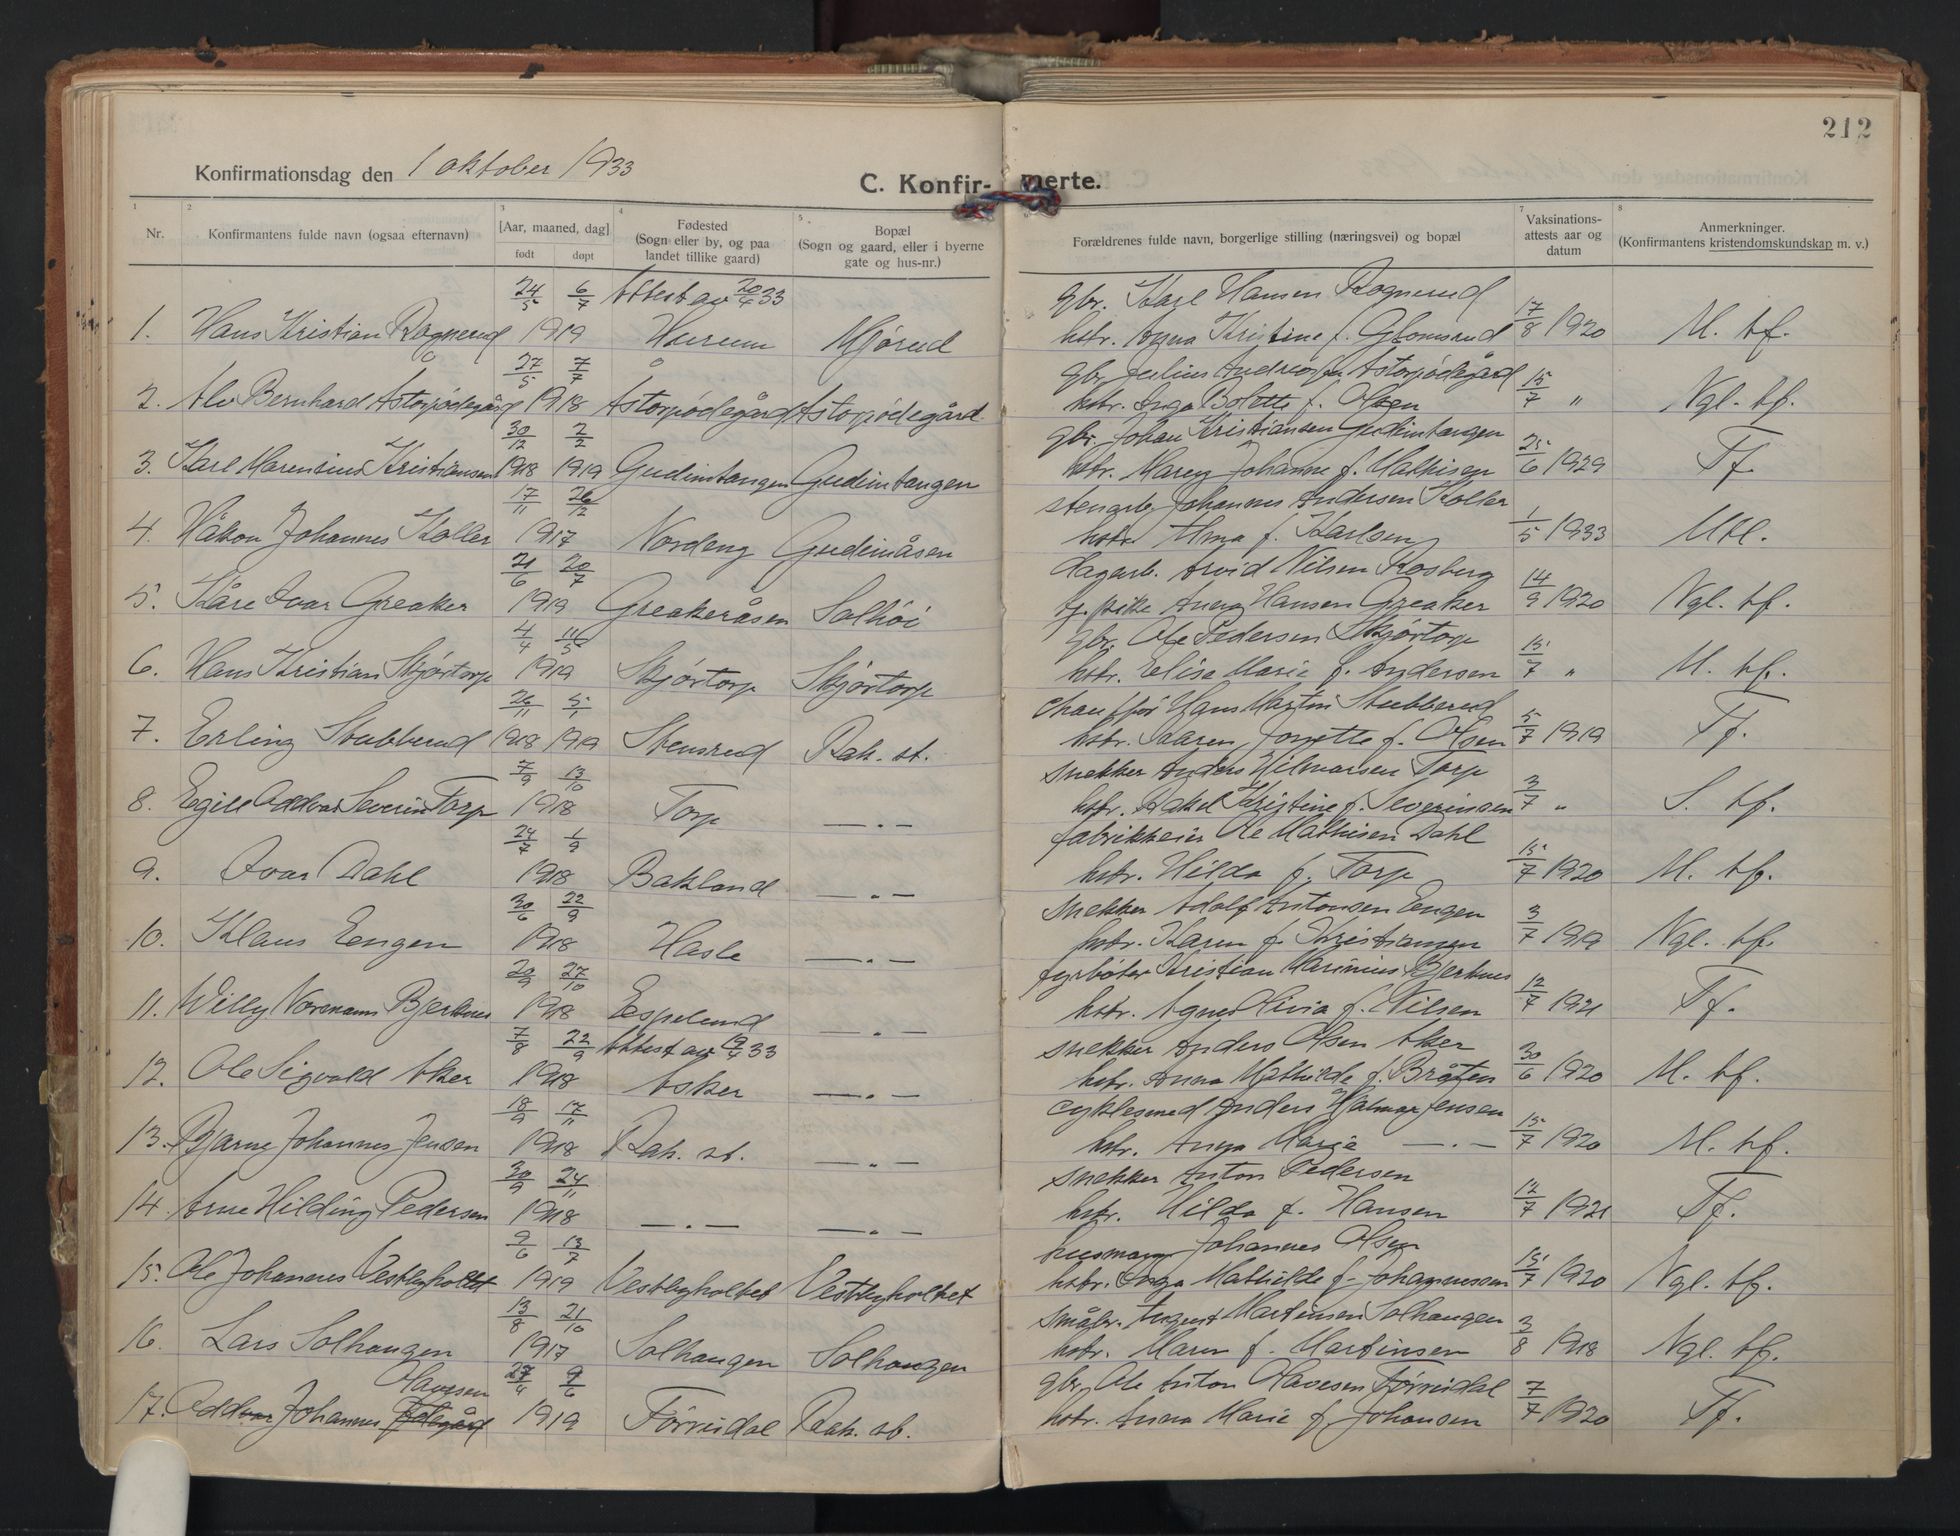 212
Konfirmationsdag den 1 oktober 1933
C. Konfirmerte.
1 2 3 4 5 7 8
Nr. Konfirmantens fulde navn (ogsaa efternavn) [Aar, maaned, dag] født døpt Fødested (Sogn eller by, og paa landet tillike gaard) Bopæl (Sogn og gaard, eller i byerne gate og hus-nr.) Forældrenes fulde navn, borgerlige stilling (næringsvei) og bopæl Vaksinations-attests aar og datum Anmerkninger. (Konfirmantens kristendomskundskap m. v.)
24/5 6/7 Attest av 20/4 33 gbr. Karl Hansen Rognerud
1. Hans Kristian Rognerud 1919 Hærum Mjørud hstr. Anna Kristine f. Glomsrud 17/8 1920 M. tf.
27/5 7/7 gbr. Julius Andreas Astorpødegård
2. Alv Bernhard Astorpødegård 1918 Astorpødegård Astorpødegård hstr. Inga Bolette f. Olsen 15/7 " Ngl. tf.
30/12 2/2 gbr. Johan Kristiansen Gudimtangen
3. Karl Marensius Kristiansen 1918 1919 Gudimtangen Gudimtangen hstr. Maren Johanne f. Mathisen 25/6 1929 Tf.
17/11 26/12 stenarb. Johannes Andersen Koller
4. Håkon Johannes Koller 1917 Nordeng Gudimåsen hstr. Alma f. Karlsen 1/5 1933 Mtl.
21/6 20/7 dagarb. Arvid Nilsen Rosberg
5. Kåre Ivar Greaker 1919 Greakeråsen Solhöi tj.pike Anna Hansen Greaker 14/9 1920 Ngl. tf.
4/4 11/5 gbr. Ole Pedersen Skjørtorp
6. Hans Kristian Skjørtorp 1919 Skjørtorp Skjørtorp hstr. Elise Marie f. Andersen 15/7 " M. tf.
26/11 5/1 chauffør Hans Martin Stubberud
7. Erling Stubberud 1918 1919 Stensrud Rak. st. hstr. Kaaren Josette f. Olsen 5/8 1919 Tf.
7/9 13/10 snekker Anders Hilmarsen Torp
8. Egill Oddvar Severin Torp 1918 Torp —"— hstr. Rakel Kristine f. Severinsen 3/7 " S. tf.
24/7 1/9 fabrikkeier Ole Mathisen Dahl
9. Ivar Dahl 1918 Bakland —"— hstr. Hilda f. Torp 15/7 1920 M. tf.
30/6 22/9 snekker Adolf Antonsen Eengen
10. Klaus Eengen 1918 Hasle —"— hstr. Karen f. Kristiansen 3/7 1919 Ngl. tf.
29/9 27/10 fyrbøter Kristian Marinius Bjerknes
11. Willy Normann Bjerknes 1918 Espelund —"— hstr. Agnes Olivia f. Nilsen 12/7 1921 Tf.
7/8 22/9 Attest av 19/4 33 snekker Anders Olsen Aker
12. Ole Sigvald Aker 1918 Asker —"— hstr. Anna Mathilde f. Bråten 30/6 1920 M. tf.
18/9 17/11 cyklesmed Anders Hjalmar Jensen
13. Bjarne Johannes Jensen 1918 Rak. st. —"— hstr. Anna Marie —"— 15/7 1920 M. tf.
30/9 24/11 snekker Anton Pedersen
14. Arne Hilding Pedersen 1918 —"— —"— hstr. Hilda f. Hansen 12/7 1921 Tf.
9/6 13/7 husmann Johannes Olsen
15. Ole Johannes Vestbyholtet 1919 Vestbyholtet Vestbyholtet hstr. Inga Mathilde f. Johannessen 15/7 1920 Ngl. tf.
13/8 21/10 småbr. August Martinsen Solhaugen
16. Lars Solhaugen 1917 Solhaugen Solhaugen hstr. Maren f. Martinsen 3/8 1918 Ngl. tf.
Olavesen 27/4 9/6 gbr. Ole Anton Olavesen Tørrisdal
17. Oddvar Johannes Ødegård 1919 Tørrisdal Rak. st. hstr. Anna Marie f. Johansen 7/7 1920 Tf.